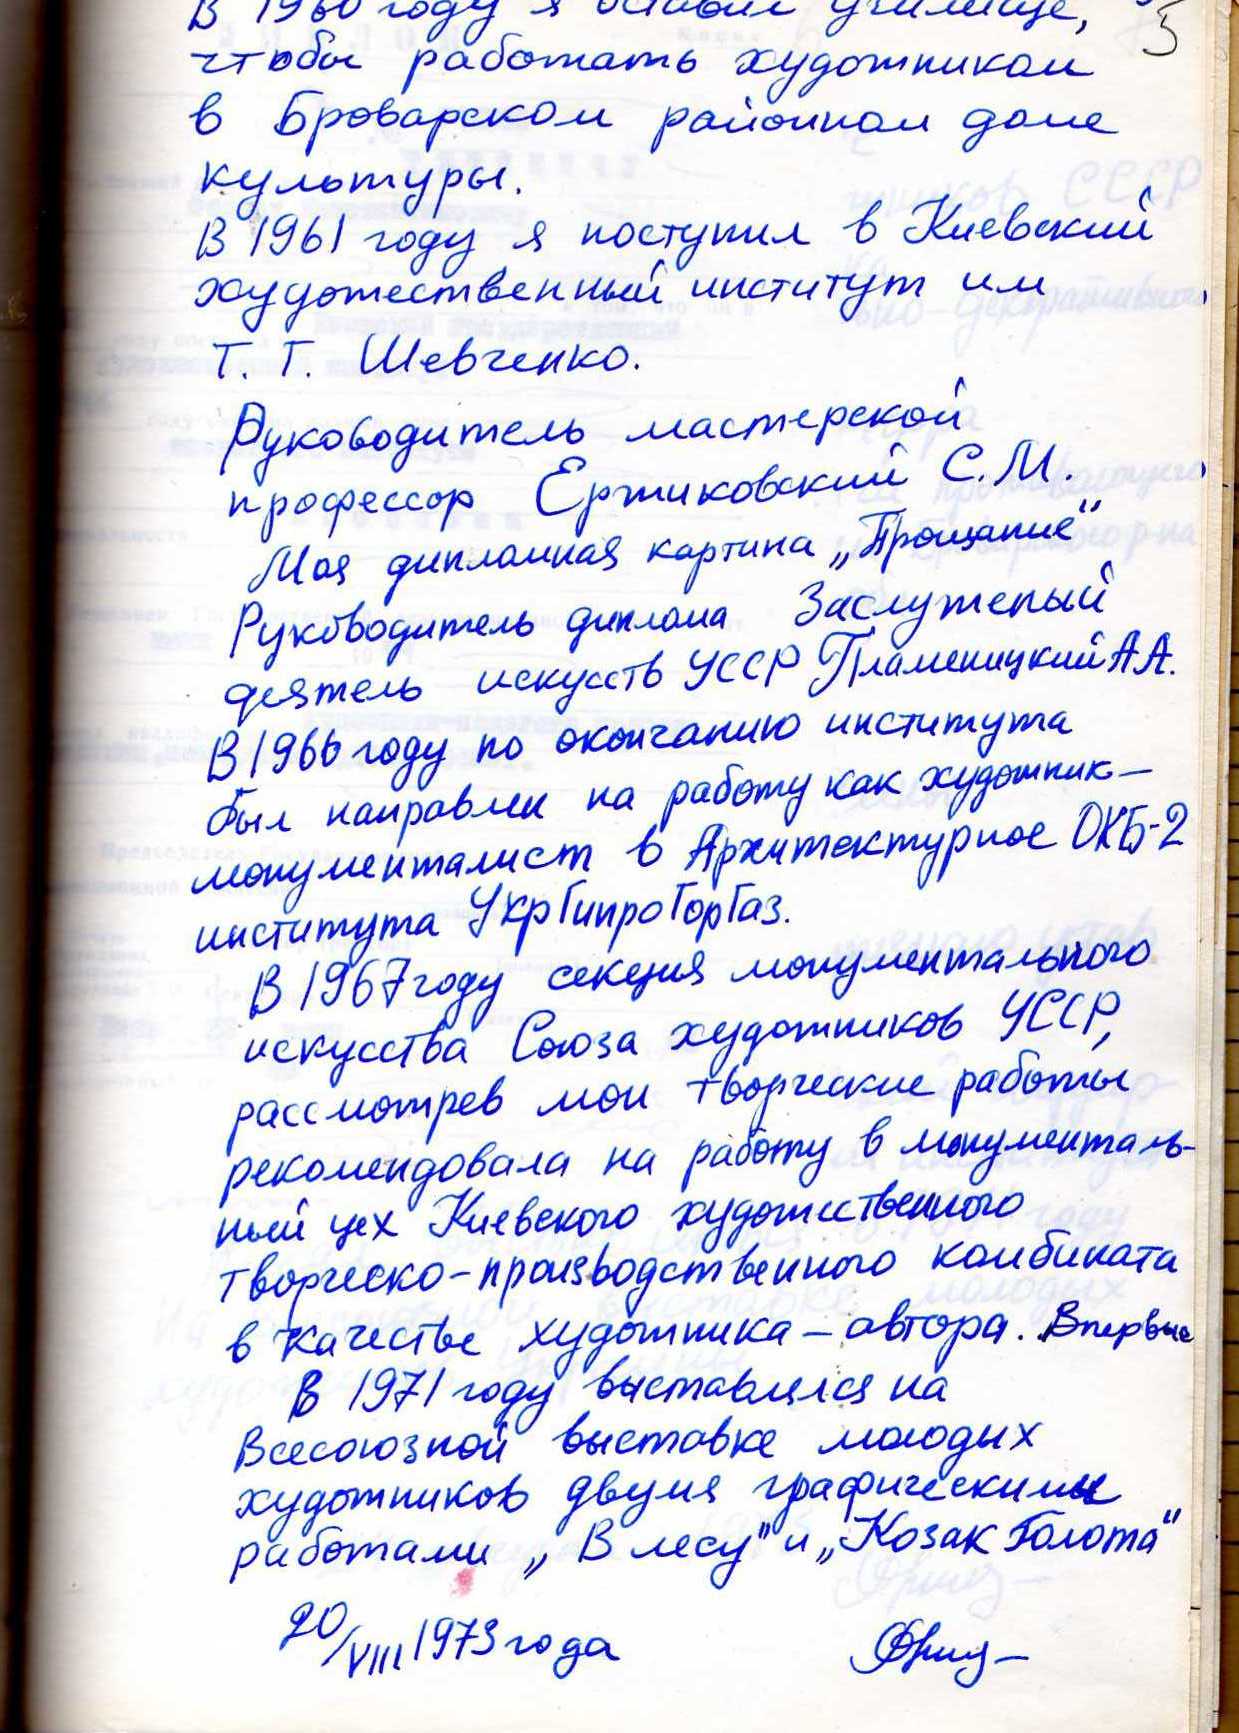 В 1960 году я оставил училище,
5
чтобы работать художником
в Броварском районном доме
культуры.
В 1961 году я поступил в Киевский
художественный институт им
Т. Г. Шевченко.
Руководитель мастерской
профессор Ержиковский С. М.
Моя дипломная картина „Прощание"
Руководитель диплома Заслуженый
деятель искусств УССР Пламеницкий А А.
В 1966 году по окончанию института
был направлен на работу как художник-
монументалист в Архитектурное ОКБ-2
института УкрГипроГорГаз.
В 1967 году секция монументального
искусства Союза художников УССР,
рассмотрев мои творческие работы
рекомендовала на работу в монументаль-
ный цех Киевского художественного
творческо-производственного комбината
в качестве художника - автора. Впервые
В 1971 году выставлялся на
Всесоюзной выставке молодых
художников двумя графическими
работами „В лесу" и „Козак Голота"
20/VIII 1973 года